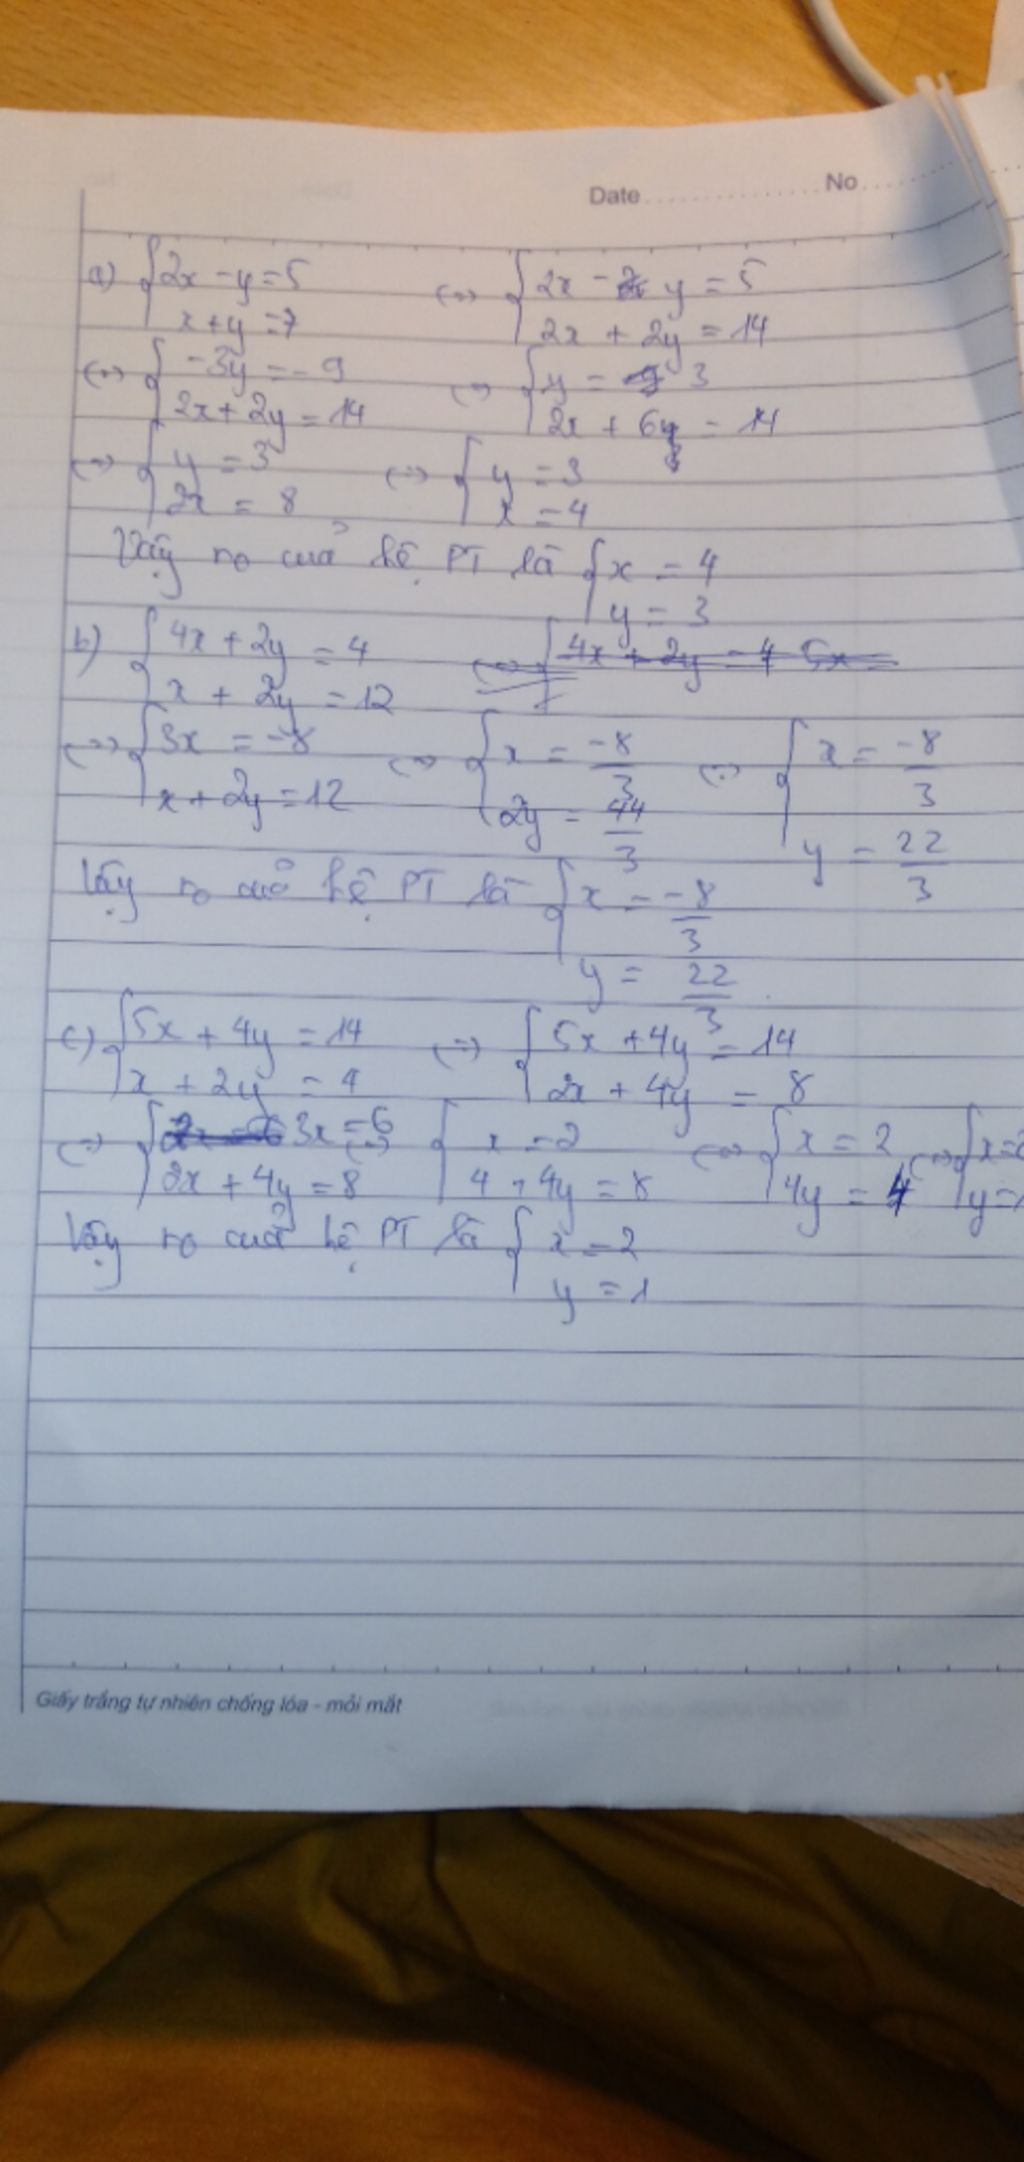 Date.................No......
a) { 2x - y = 5 <=> { 2x - y = 5
x + y = 7 2x + 2y = 14
<=> { -3y = -9 <=> { y = 3
2x + 2y = 14 2x + 6 = 14
<=> { y = 3 <=> { y = 3
2x = 8 x = 4
Vậy no của hệ PT là { x = 4
y = 3
b) { 4x + 2y = 4
x + 2y = 12
<=> { 3x = -8 <=> { x = -8/3 <=> { x = -8/3
x + 2y = 12 2y = 44/3 y = 22/3
Vậy no của hệ PT là { x = -8/3
y = 22/3
c) { 5x + 4y = 14 <=> { 5x + 4y = 14
x + 2y = 4 2x + 4y = 8
<=> { 3x = 6 <=> { x = 2 <=> { x = 2 <=> { x =
2x + 4y = 8 4 + 4y = 8 4y = 4 y =
Vậy no của hệ PT là { x = 2
y = 1
Giấy trắng tự nhiên chống lóa - mỏi mắt